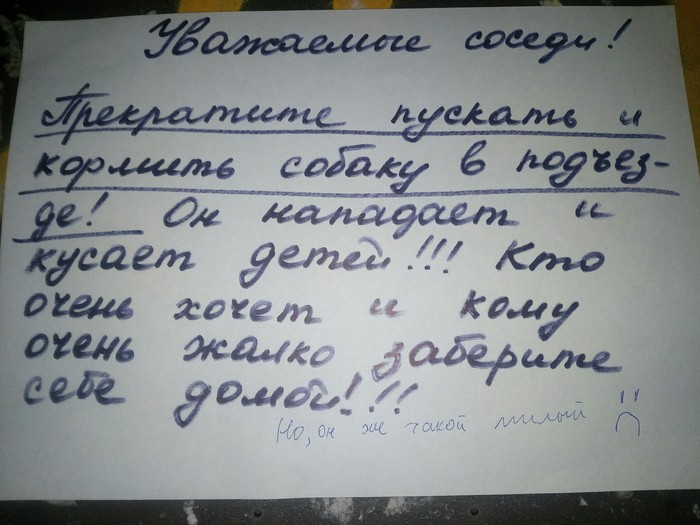 Уважаемые соседи!
Прекратите пускать и
кормить собаку в подъез-
де! Он нападает и
кусает детей!!! Кто
очень хочет и кому
очень жалко заберите
себе домой!!!
Но, он же такой милый :(